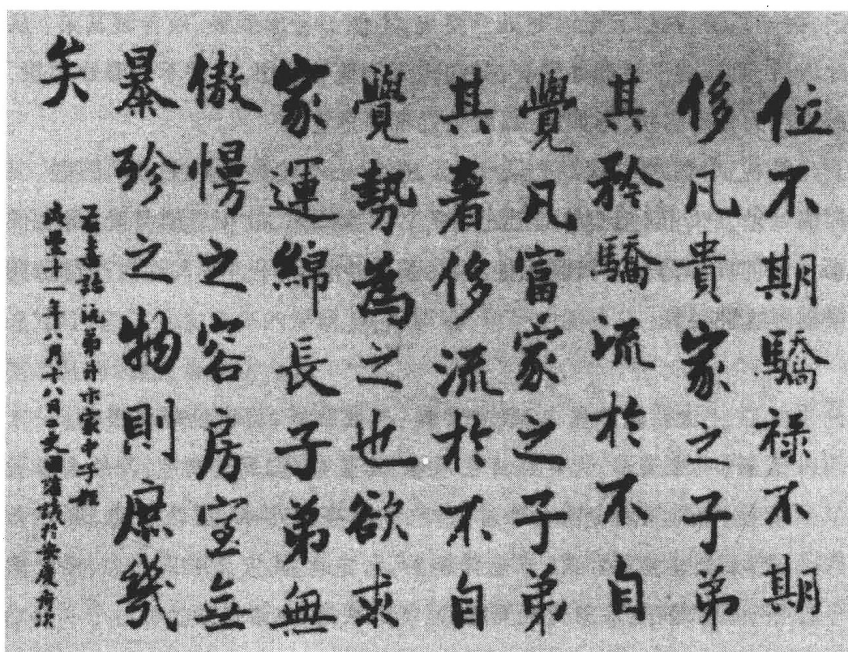 位不期驕祿不期
侈凡貴家之子弟
其矜驕流於不自
覺凡富家之子弟
其奢侈流於不自
覺勢為之也欲求
家運綿長子弟無
傲慢之容房室無
暴殄之物則庶幾
矣
書論沅弟并示家中子姪
咸豐十一年八月十八日 國藩識於安慶舟次